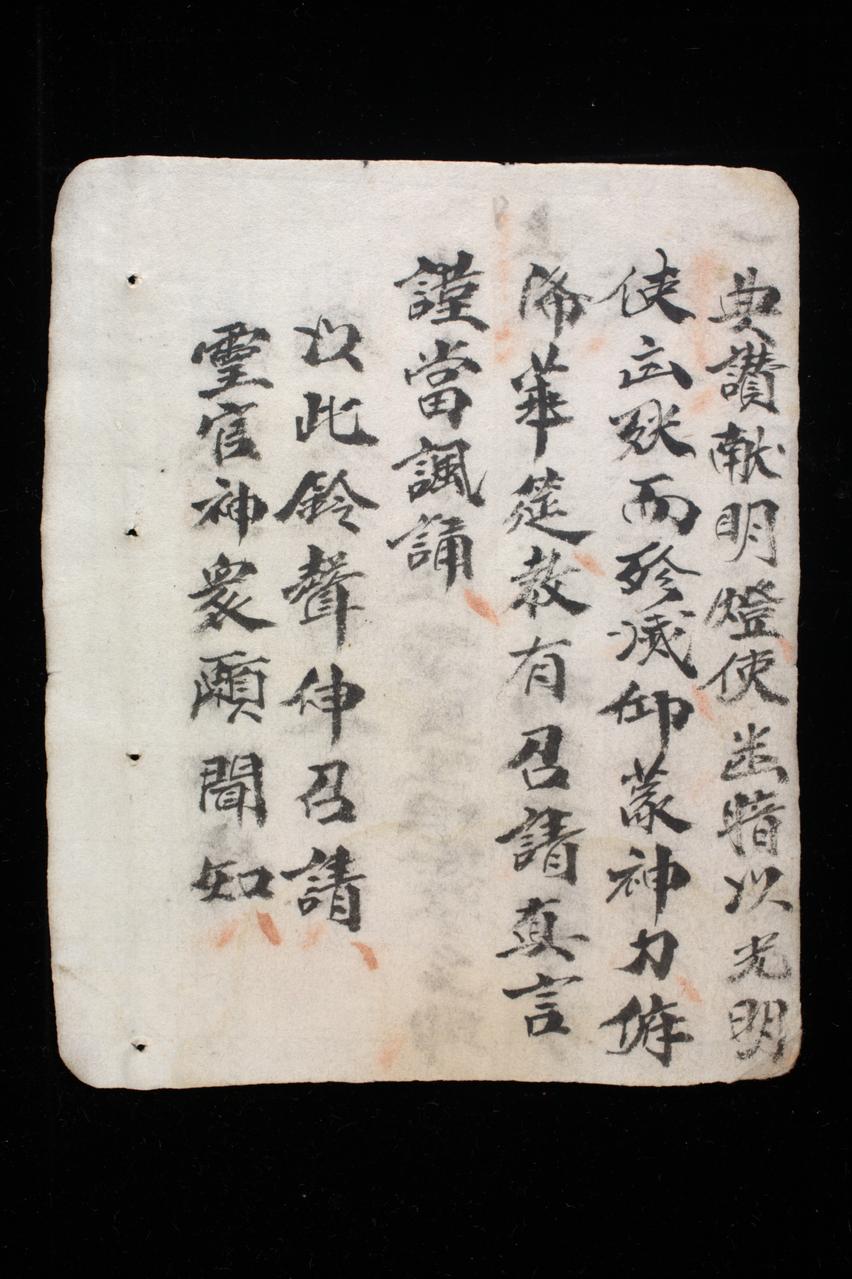 典讃献明燈使幽暗以光明
使㐫殃而殄滅仰蒙神力俯
降華筵教有召請真言
謹當諷誦
以此鈴聲伸召請
霊官神衆願聞知